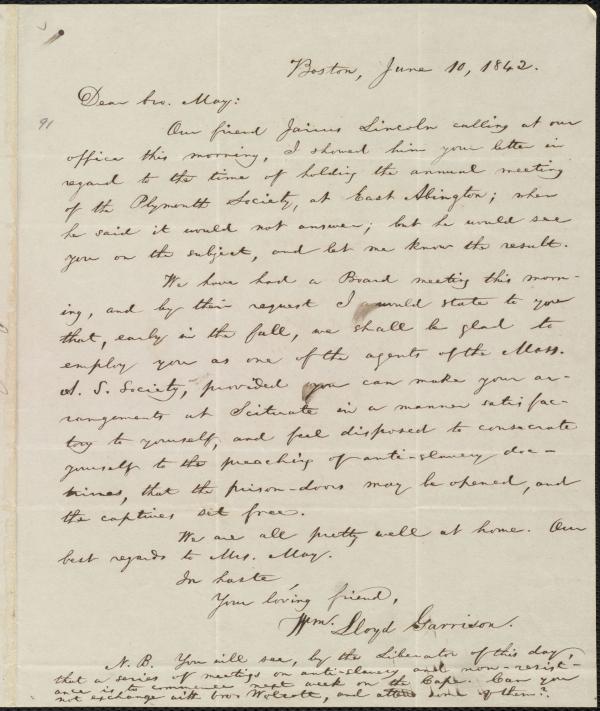 91
Boston, June 10, 1842.
Dear bro. May:
Our friend Jairus Lincoln calling at our
office this morning, I showed him your letter in
regard to the time of holding the annual meeting
of the Plymouth Society, at East Abington; when
he said it would not answer; but he would see
you on the subject, and let me know the result.
We have had a Board meeting this morn-
ing, and by their request I would state to you
that, early in the fall, we shall be glad to
employ you as one of the agents of the Mass.
A. S. Society, provided you can make your ar-
rangements at Scituate in a manner satisfac-
tory to yourself, and feel disposed to consecrate
yourself to the preaching of anti-slavery doc-
trines, that the prison-doors may be opened, and
the captives set free.
We are all pretty well at home. Our
best regards to Mrs. May.
In haste,
Your loving friend,
Wm. Lloyd Garrison.
N. B. You will see, by the Liberator of this day,
that a series of meetings on anti-slavery and non-resist-
ance is to commence next week on the Cape. Can you
not exchange with bro. Wolcott, and attend some of them?